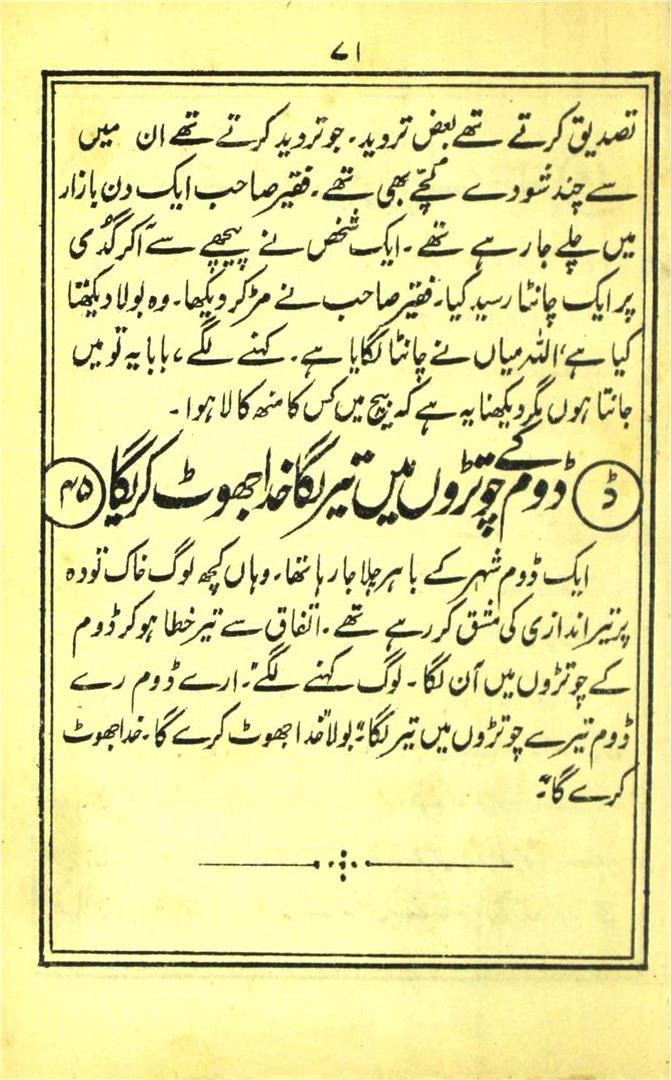 ۷۱
تصدیق کرتے تھے بعض تردید۔ جو تردید کرتے تھے ان میں
سے چند شودے لچّے بھی تھے۔ فقیر صاحب ایک دن بازار
میں چلے جا رہے تھے۔ ایک شخص نے پیچھے سے آکر گدّی
پر ایک چانٹا رسید کیا۔ فقیر صاحب نے مڑ کر دیکھا۔ وہ بولا دیکھتا
کیا ہے، اللہ میاں نے چانٹا لگایا ہے۔ کہنے لگے، بابا یہ تو میں
جانتا ہوں مگر دیکھنا یہ ہے کہ بیچ میں کس کا منھ کالا ہوا۔
ڈ ڈوم کے چوتڑوں میں تیر لگا خدا جھوٹ کریگا ۴۵
ایک ڈوم شہر کے باہر چلا جا رہا تھا۔ وہاں کچھ لوگ خاک تودہ
پر تیر اندازی کی مشق کر رہے تھے۔ اتفاق سے تیر خطا ہوکر ڈوم
کے چوتڑوں میں آن لگا۔ لوگ کہنے لگے "ارے ڈوم رے
ڈوم تیرے چوتڑوں میں تیر لگا"۔ بولا "خدا جھوٹ کرے گا۔ خدا جھوٹ
کرے گا"۔